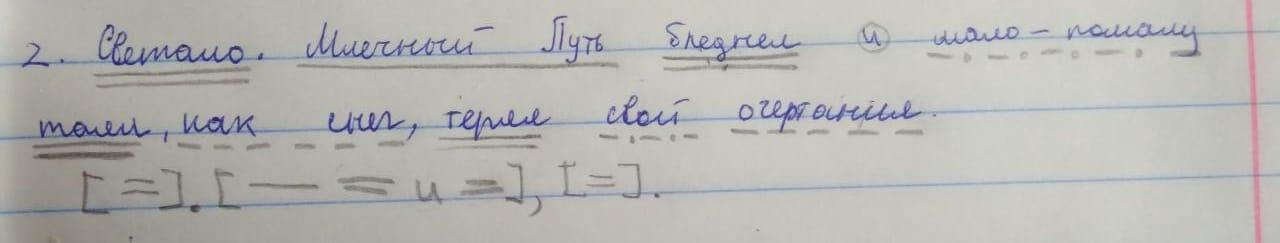 2. Светало. Млечный Путь бледнел и мало-помалу
таял, как снег, теряя свой очертания.
[=]. [— = и =], [=].